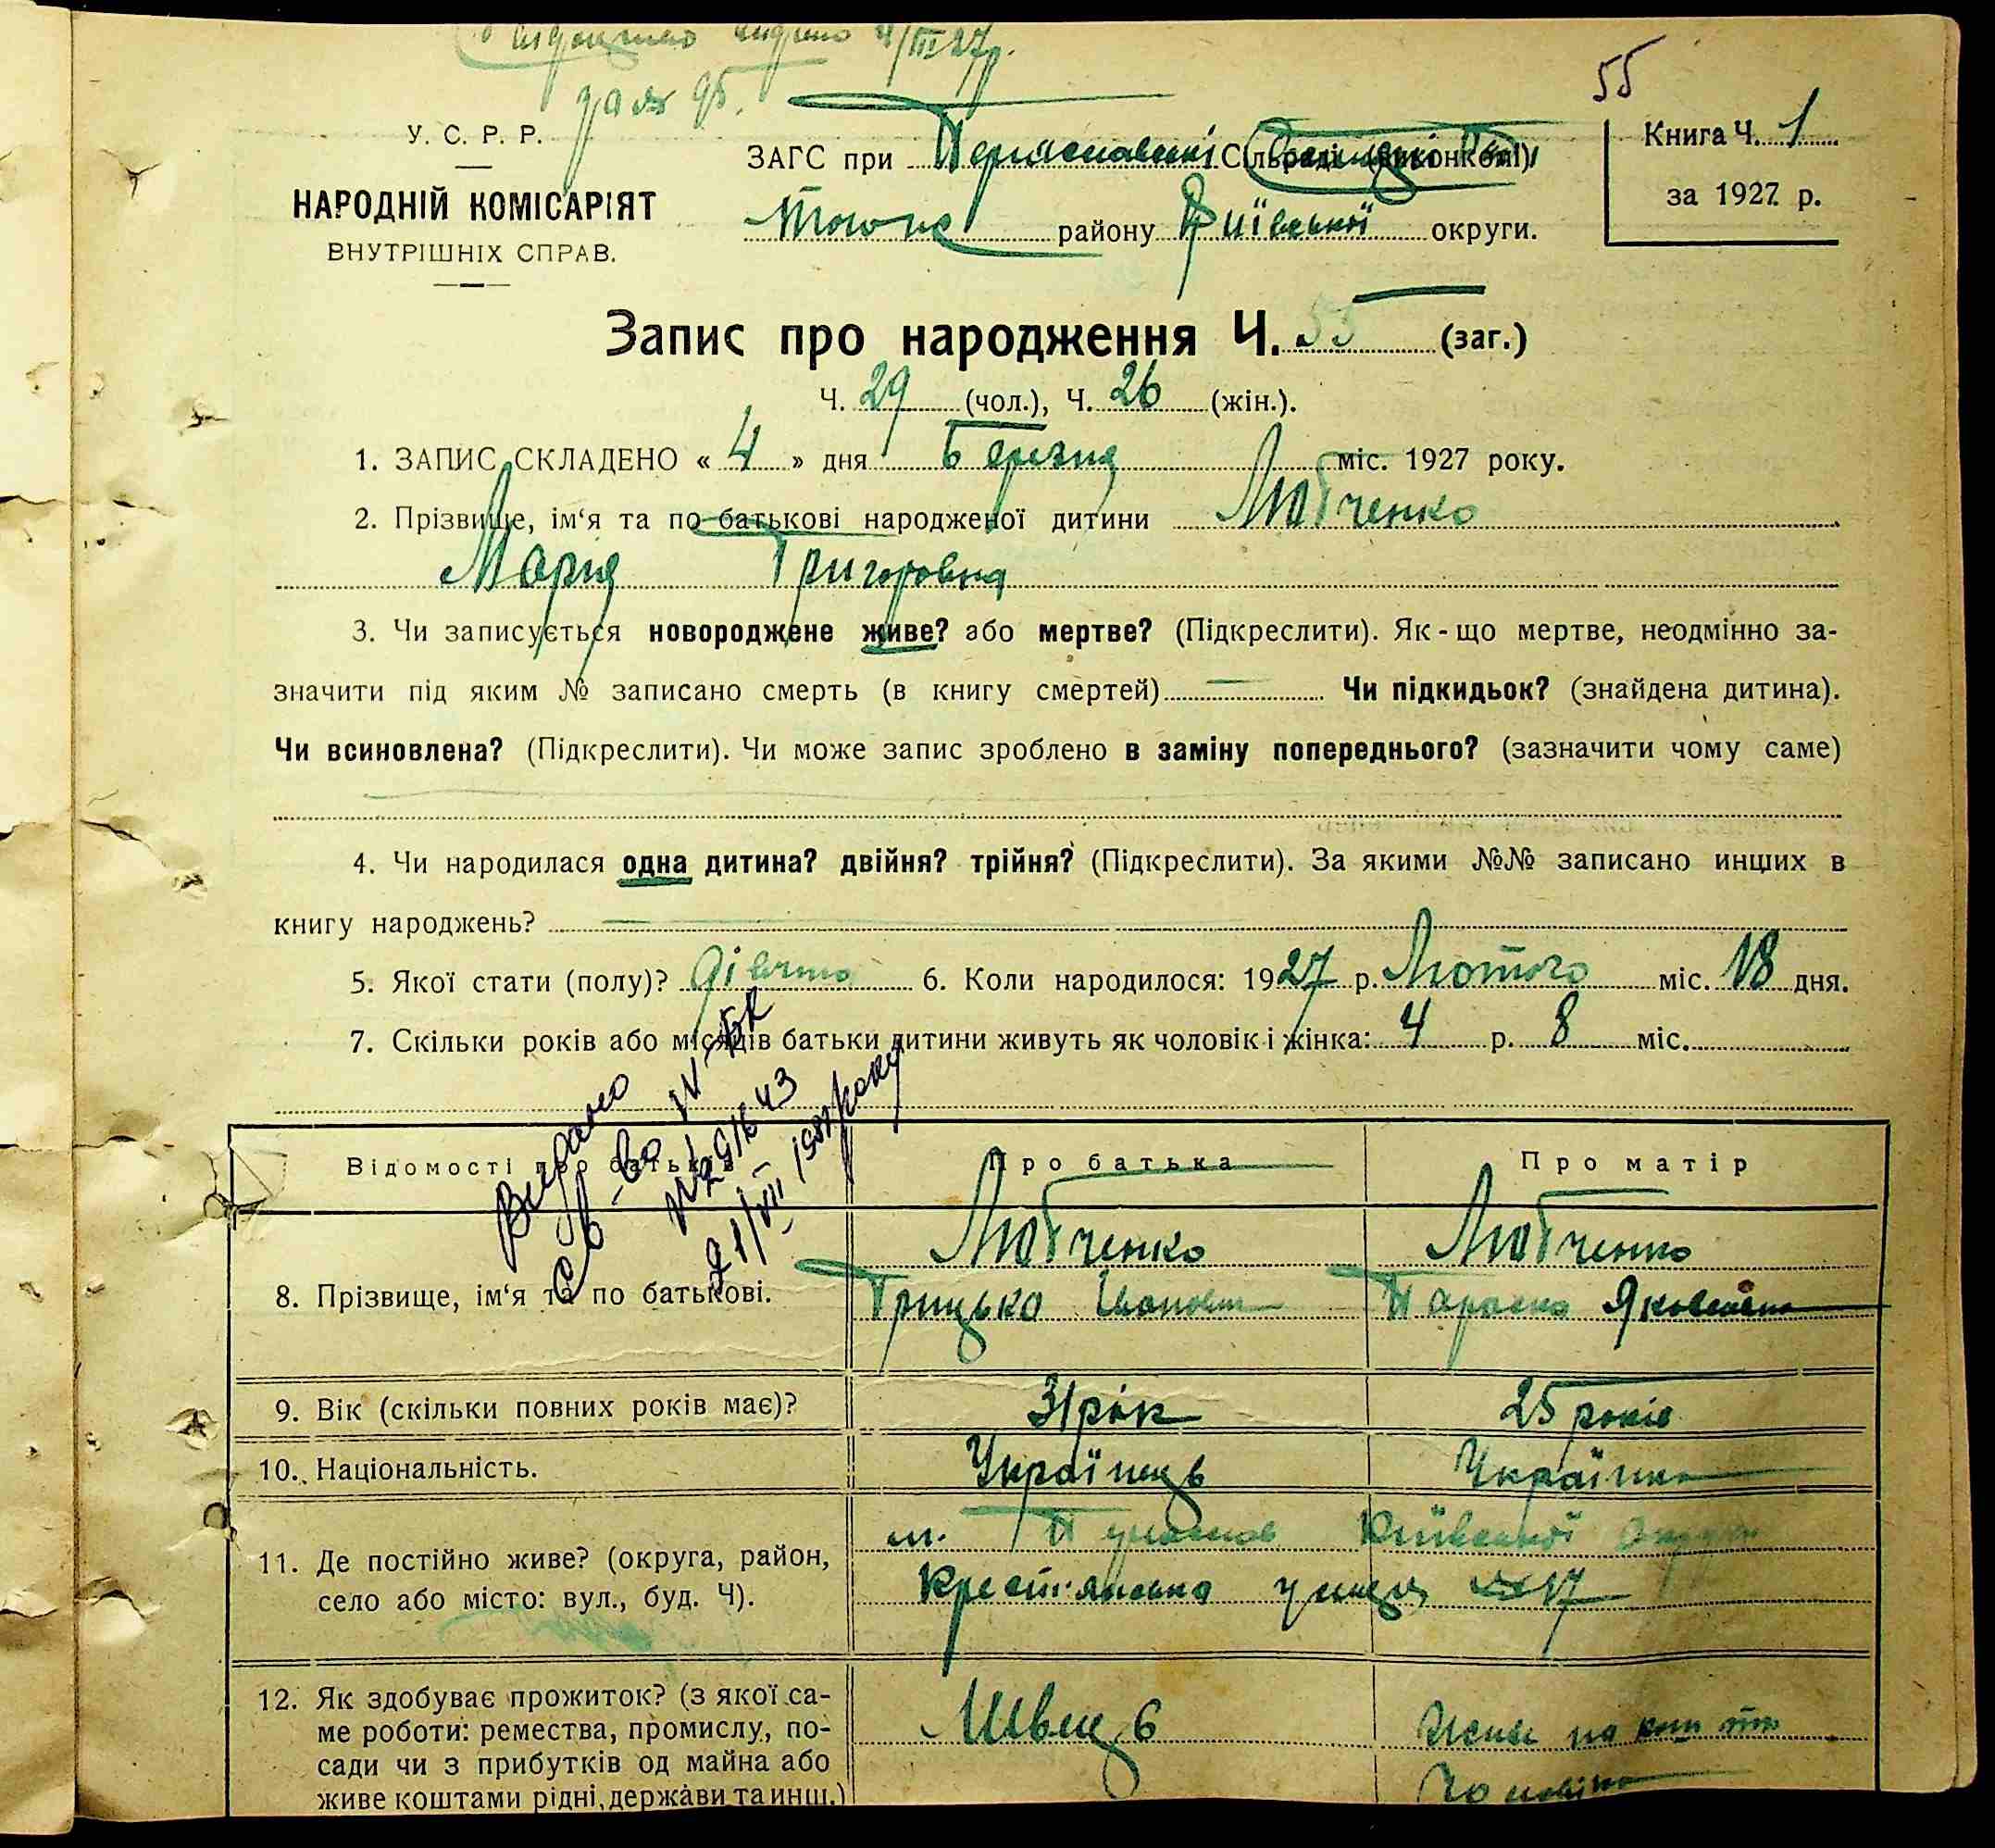 видано 4/III 27р.
за № 95.
55
У. С. Р. Р.
НАРОДНІЙ КОМІСАРІЯТ
ВНУТРІШНІХ СПРАВ.
ЗАГС при Сільраді (Виконкомі)
району Київської округи.
Книга Ч. 1
за 1927 р.
Запис про народження Ч. 55 (заг.)
Ч. 29 (чол.), Ч. 26 (жін.).
1. ЗАПИС СКЛАДЕНО « 4 » дня Березня міс. 1927 року.
2. Прізвище, ім‘я та по батькові народженої дитини Любченко
Марія Григоровна
3. Чи записується новороджене живе? або мертве? (Підкреслити). Як-що мертве, неодмінно за-
значити під яким № записано смерть (в книгу смертей) Чи підкидьок? (знайдена дитина).
Чи всиновлена? (Підкреслити). Чи може запис зроблено в заміну попереднього? (зазначити чому саме)
4. Чи народилася одна дитина? двійня? трійня? (Підкреслити). За якими №№ записано инших в
книгу народжень?
5. Якої стати (полу)? дівчина 6. Коли народилося: 1927 р. Лютого міс. 18 дня.
7. Скільки років або місяців батьки дитини живуть як чоловік і жінка: 4 р. 8 міс.
Видано
Св-во IV-БК
№ 291643
21/VIII 1981 року
Відомості про батьків Про батька Про матір
8. Прізвище, ім‘я та по батькові.
Любченко Любченко
Грицько Іванович Параска Яковлевна
9. Вік (скільки повних років має)? 31 рік 25 років
10. Національність. Українець Українка
11. Де постійно живе? (округа, район,
село або місто: вул., буд. Ч).
м. Київської округи
Крестьянська улиця № 17
12. Як здобуває прожиток? (з якої са-
ме роботи: ремества, промислу, по-
сади чи з прибутків од майна або
живе коштами рідні, держави та инш.)
Швець
на кошти
Чоловіка